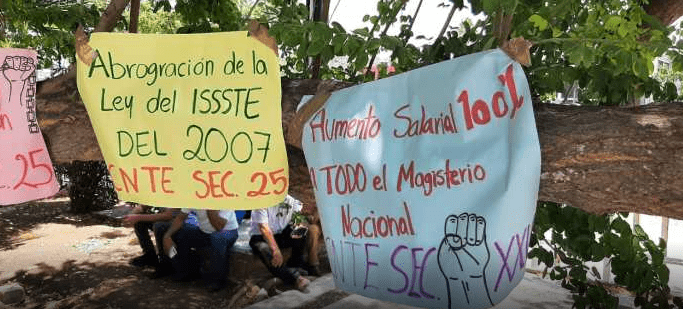 C. 25
Abrogración de la
Ley del ISSSTE
DEL 2007
CNTE SEC. 25
Aumento Salarial 100%
A TODO el Magisterio
Nacional
CNTE SEC. XX